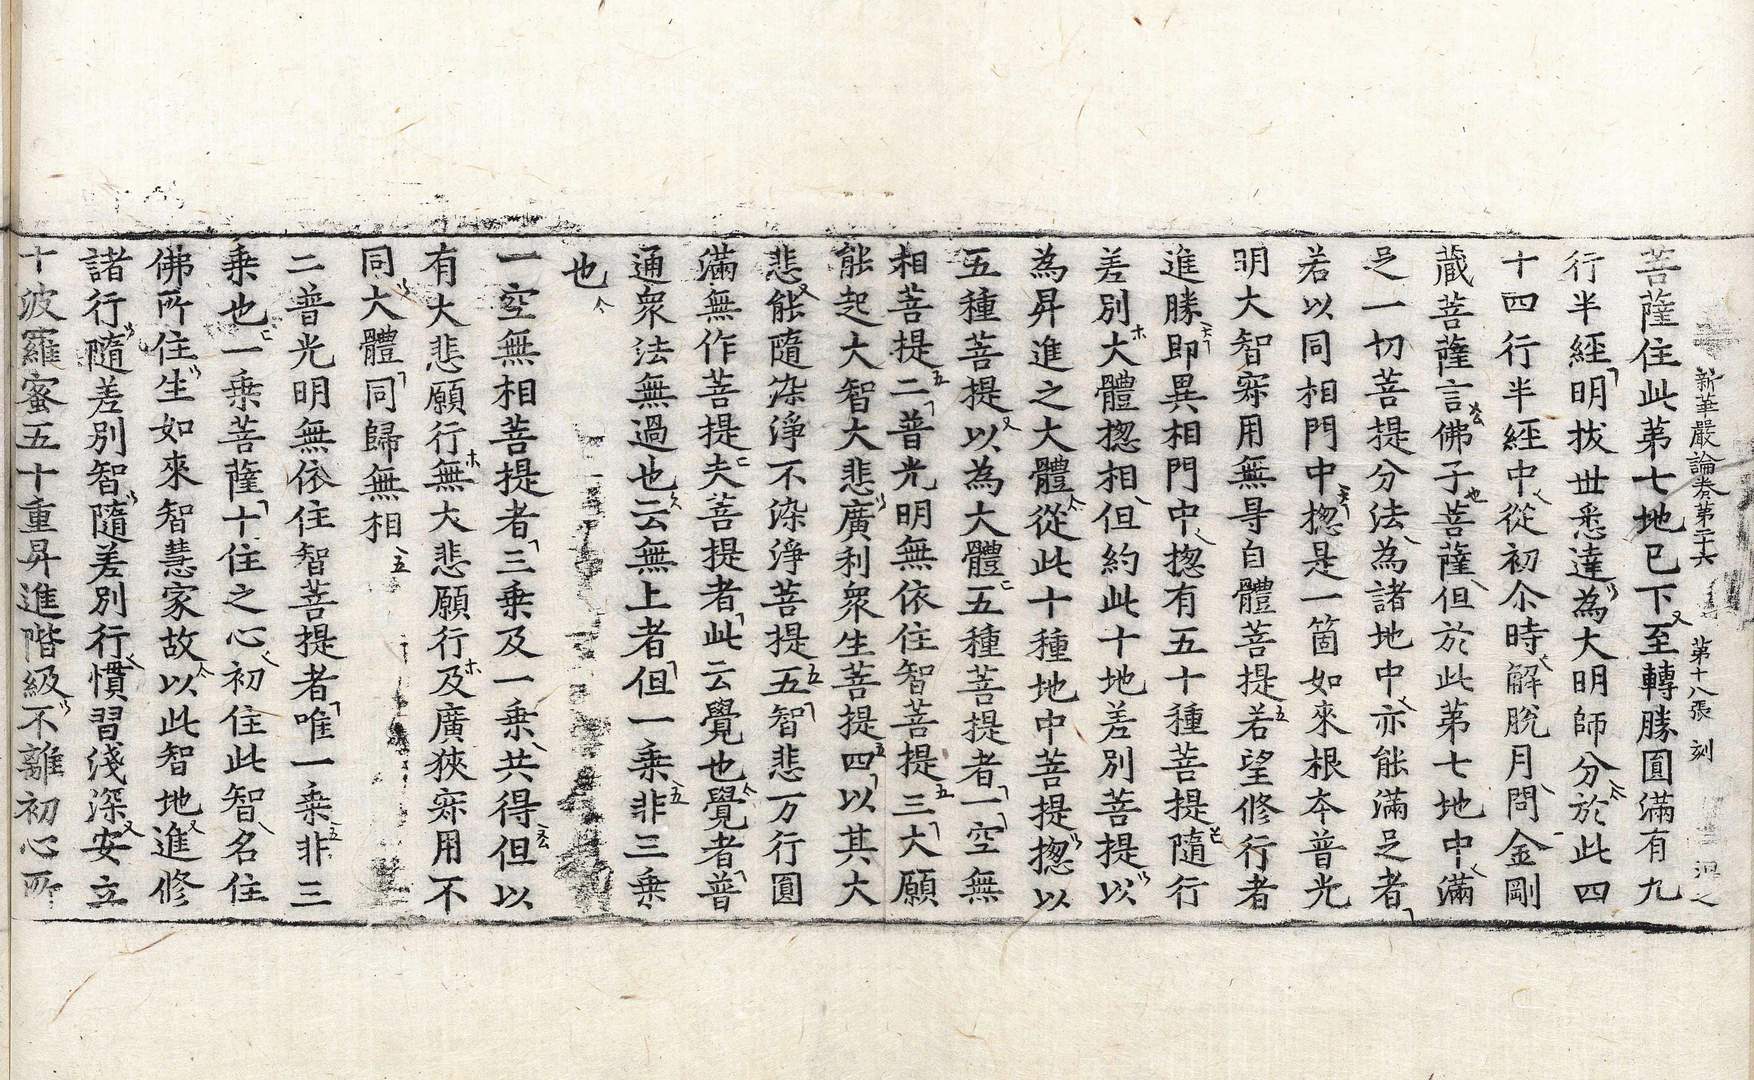 新華嚴論卷第二十六 第十八張 刻
菩薩住此第七地已下至轉勝圓滿有九
行半經明拔世悉達為大明師分於此四
十四行半經中從初尒時解脫月問金剛
藏菩薩言佛子菩薩但於此第七地中滿
足一切菩提分法為諸地中亦能滿足者
若以同相門中揔是一箇如來根本普光
明大智寂用無㝵自體菩提若望修行者
進勝即異相門中揔有五十種菩提隨行
差別大體揔相但約此十地差別菩提以
為昇進之大體從此十種地中菩提揔以
五種菩提以為大體五種菩提者一空無
相菩提二普光明無依住智菩提三大願
能起大智大悲廣利衆生菩提四以其大
悲能隨染淨不染淨菩提五智悲万行圓
滿無作菩提夫菩提者此云覺也覺者普
通衆法無過也云無上者但一乗非三乗
也
一空無相菩提者三乗及一乗共得但以
有大悲願行無大悲願行及廣狹寂用不
同大體同歸無相
二普光明無依住智菩提者唯一乗非三
乗也一乗菩薩十住之心初住此智名住
佛所住生如來智慧家故以此智地進修
諸行隨差別智隨差別行慣習淺深安立
十波羅蜜五十重昇進階級不離初心所